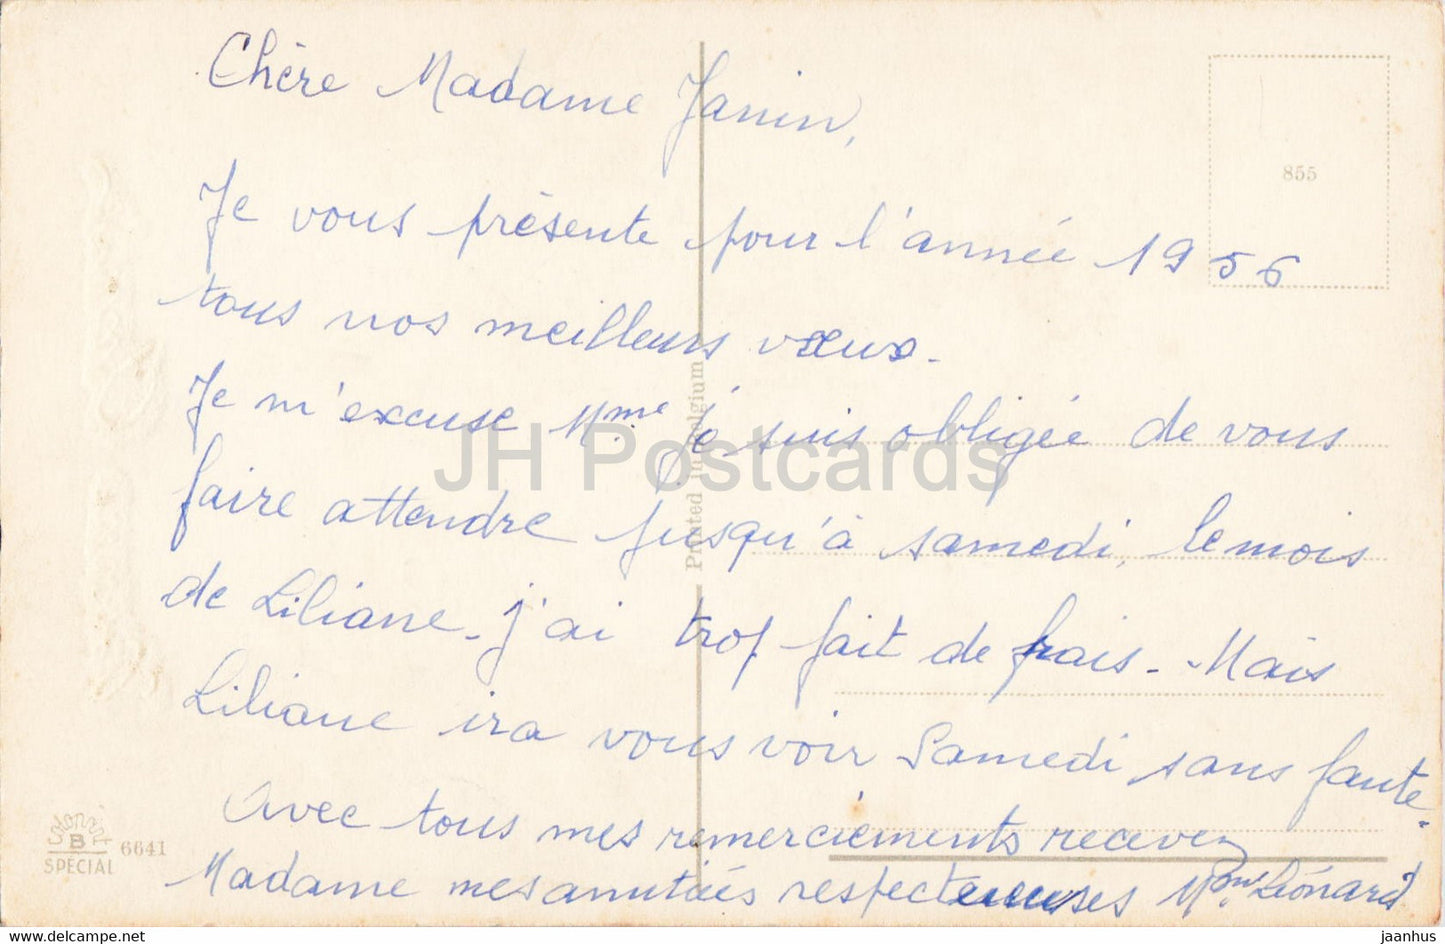 Chère Madame Janin,
855
Je vous présente pour l'année 1956
tous nos meilleurs vœux.
Je m'excuse Mme je suis obligée de vous
faire attendre jusqu'à samedi, le mois
de Liliane. j'ai trop fait de frais. Mais
Liliane ira vous voir Samedi sans faute.
Avec tous mes remerciements recevez
Madame mes amitiés respectueuses Mme Léonard
Printed in Belgium
JH Postcards
Colorprint
B
SPECIAL 6641
www.delcampe.net
jaanhus